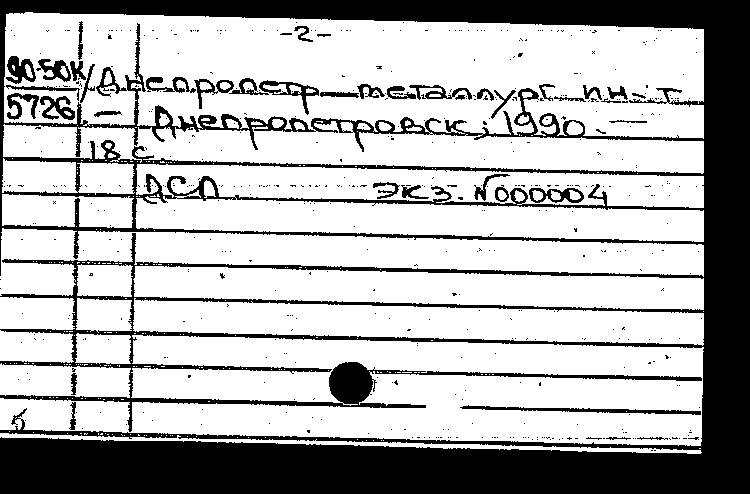 -2-
90-50К / Днепропетр металлург. ин-т.
5726 — Днепропетровск, 1990. —
18 с.
ДСП экз. №000004
5